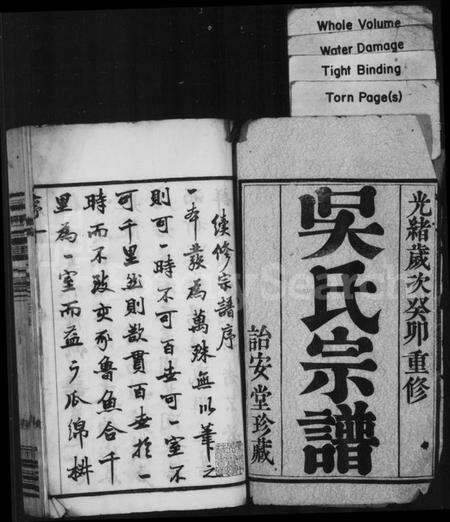 Whole Volume
Water Damage
Tight Binding
Torn Page(s)
光緒歲次癸卯重修
吳氏宗譜
詒安堂珍藏
續修宗譜序
一本發為萬殊無以筆之
則可一時不可百世可一室不
可千里然則欲貫百世於一
時而不致亥豕魯魚合千
里為一室而益之瓜綿椒
序一